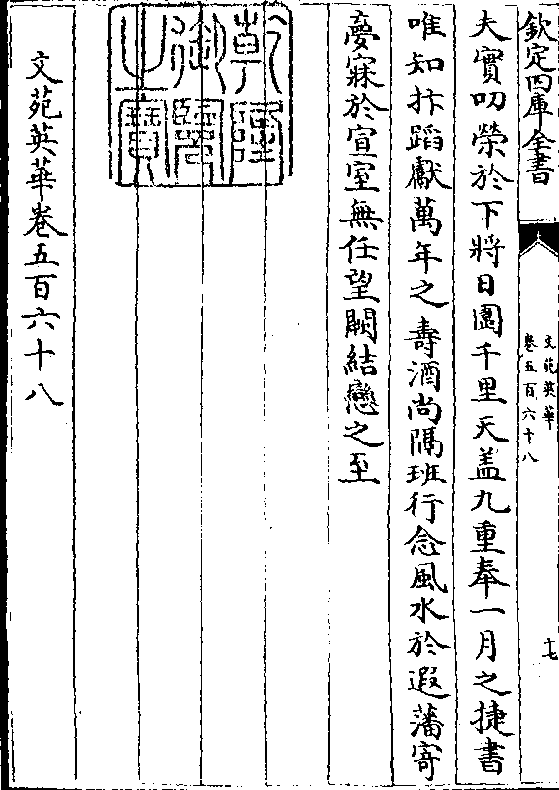 欽定四庫全書
文苑英華
卷五百六十八
十七
夫實叨榮於下將日圍千里天蓋九重奉一月之捷書
唯知抃蹈獻萬年之壽酒尚隔班行念風水於遐藩寄
夢寐於宣室無任望闕結戀之至
乾隆御覽之寶
文苑英華卷五百六十八